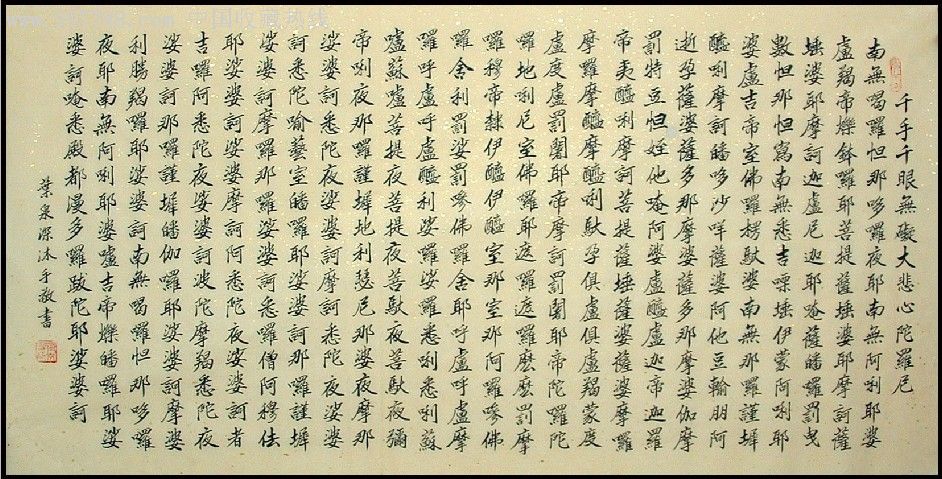 中国收藏热线
千手千眼無礙大悲心陀羅尼
南無喝囉怛那哆囉夜耶南無阿利耶婆
盧羯帝爍鉢囉耶菩提薩埵婆耶摩訶薩
埵婆耶摩訶迦盧尼迦耶唵薩皤囉罰曳
數怛那怛寫南無悉吉嘌埵伊蒙阿唎耶
婆盧吉帝室佛囉楞馱婆南無那囉謹墀
醯唎摩訶皤哆沙咩薩婆阿他豆輸朋阿
逝孕薩婆薩多那摩婆薩多那摩婆伽摩
罰特豆怛姪他唵阿婆盧醯盧迦帝迦羅
帝夷醯利摩訶菩提薩埵薩婆薩婆摩囉
摩囉摩醯摩醯唎馱孕俱盧俱盧羯蒙度
盧度盧罰闍耶帝摩訶罰闍耶帝陀囉陀
囉地唎尼室佛囉耶遮囉遮囉麼麼罰摩
囉穆帝隸伊醯伊醯室那室那阿囉嘇佛
囉舍利罰娑罰嘇佛囉舍耶呼盧呼盧摩
囉呼盧呼盧醯利娑囉娑囉悉唎悉唎蘇
嚧蘇嚧菩提夜菩提夜菩馱夜菩馱夜彌
帝唎夜那囉謹墀地利瑟尼那婆夜摩那
娑婆訶悉陀夜娑婆訶摩訶悉陀夜娑婆
訶悉陀喻藝室皤囉耶娑婆訶那囉謹墀
娑婆訶摩囉那囉娑婆訶悉囉僧阿穆佉
耶娑婆訶娑婆摩訶阿悉陀夜娑婆訶者
吉囉阿悉陀夜娑婆訶波陀摩羯悉陀夜
娑婆訶那囉謹墀皤伽囉耶娑婆訶摩婆
利勝羯囉耶娑婆訶南無喝囉怛那哆囉
夜耶南無阿唎耶婆嚧吉帝爍皤囉耶娑
婆訶唵悉殿都漫多囉跋陀耶娑婆訶
葉泉深沐手敬書